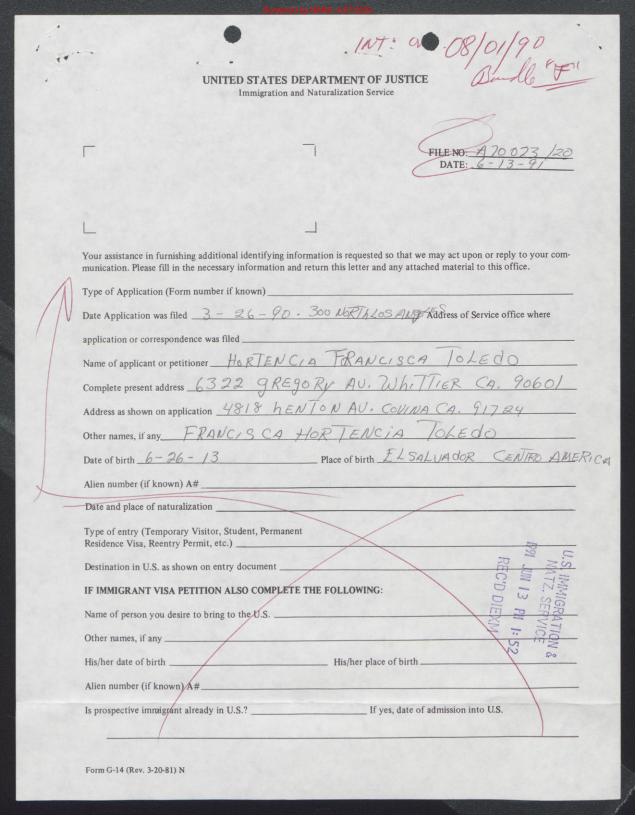 INT: 08/01/90
Bundle "F"
UNITED STATES DEPARTMENT OF JUSTICE
Immigration and Naturalization Service
FILE NO: A70 073 120
DATE: 6-13-91
Your assistance in furnishing additional identifying information is requested so that we may act upon or reply to your com-
munication. Please fill in the necessary information and return this letter and any attached material to this office.
Type of Application (Form number if known)
Date Application was filed 3-26-90. 300 NORTH LOS ANGELES Address of Service office where
application or correspondence was filed
Name of applicant or petitioner HORTENCIA FRANCISCA TOLEDO
Complete present address 6322 GREGORY AV. WHITTIER CA. 90601
Address as shown on application 4818 HENTON AV. COVINA CA. 91724
Other names, if any FRANCISCA HORTENCIA TOLEDO
Date of birth 6-26-13 Place of birth EL SALVADOR CENTRO AMERICA
Alien number (if known) A#
Date and place of naturalization
Type of entry (Temporary Visitor, Student, Permanent
Residence Visa, Reentry Permit, etc.)
Destination in U.S. as shown on entry document
IF IMMIGRANT VISA PETITION ALSO COMPLETE THE FOLLOWING:
Name of person you desire to bring to the U.S.
Other names, if any
His/her date of birth His/her place of birth
Alien number (if known) A#
Is prospective immigrant already in U.S.? If yes, date of admission into U.S.
U.S. IMMIGRATION &
NATZ. SERVICE
1991 JUN 13 PM 1:52
REC'D DIEXM
Form G-14 (Rev. 3-20-81) N